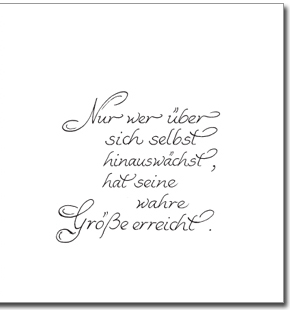 Nur wer über
sich selbst
hinauswächst,
hat seine
wahre
Größe erreicht.